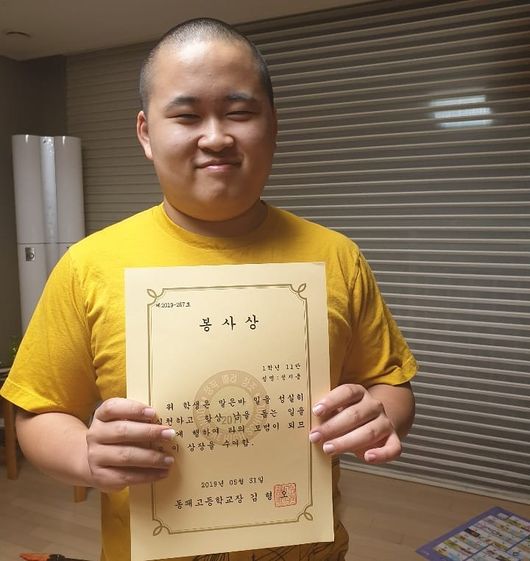 제 2019-267호
봉 사 상
1학년 11반
성명:
위 학생은 맡은바 일을 성실히
실천하고 항상 남을 돕는 일을
행하여 타의 모범이 되므
이 상장을 수여함.
2019년 05월 31일
동패고등학교장 김 형